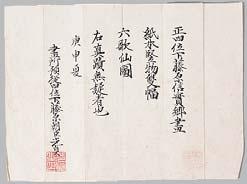 正四位下藤原信實卿畫
紙本竪物雙幅
六歌仙圖
右真蹟無疑者也
庚申夏
畫所預従四位下藤原